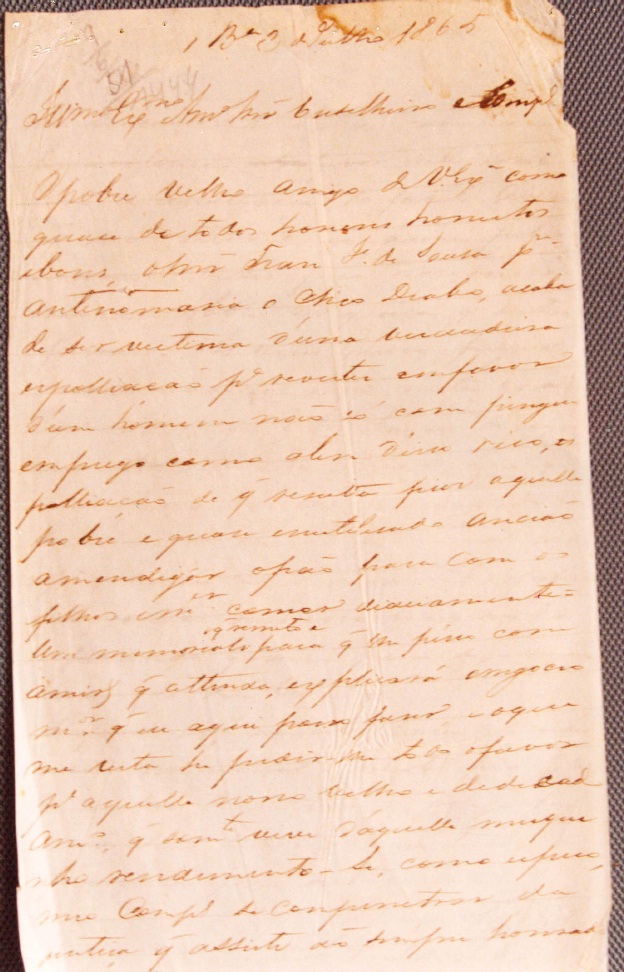 Ba 3 de Julho 1865
Illmo Exmo Amo Snr Conselheiro e Compe
O pobre velho amigo de V. Exa como
quase de todos homens honestos
e bons, o Snr Fran F. de Sousa pr
antinomasia o Chico Diabo, acaba
de ser victima d'uma verdadeira
espolliação pa reverter em favor
d'um homem não só com pingue
emprego como alem disso rico, es
polliação de q resulta ficar aquelle
pobre e quase inutilisado ancião
a mendigar o pão para com os
filhos e mer comer diariamente =
Um memorial q remette para q
q attenda, explicará
mor q eu aqui posso faser e o que
me resta he pedir-lhe todo o favor
pa aquelle nosso velho e dedicad
amo, q somte vive d'aquelle mesqui
nho rendimento - Se, como espero,
meu Compe se compenetrar da
justiça q assiste ao sempre honrad